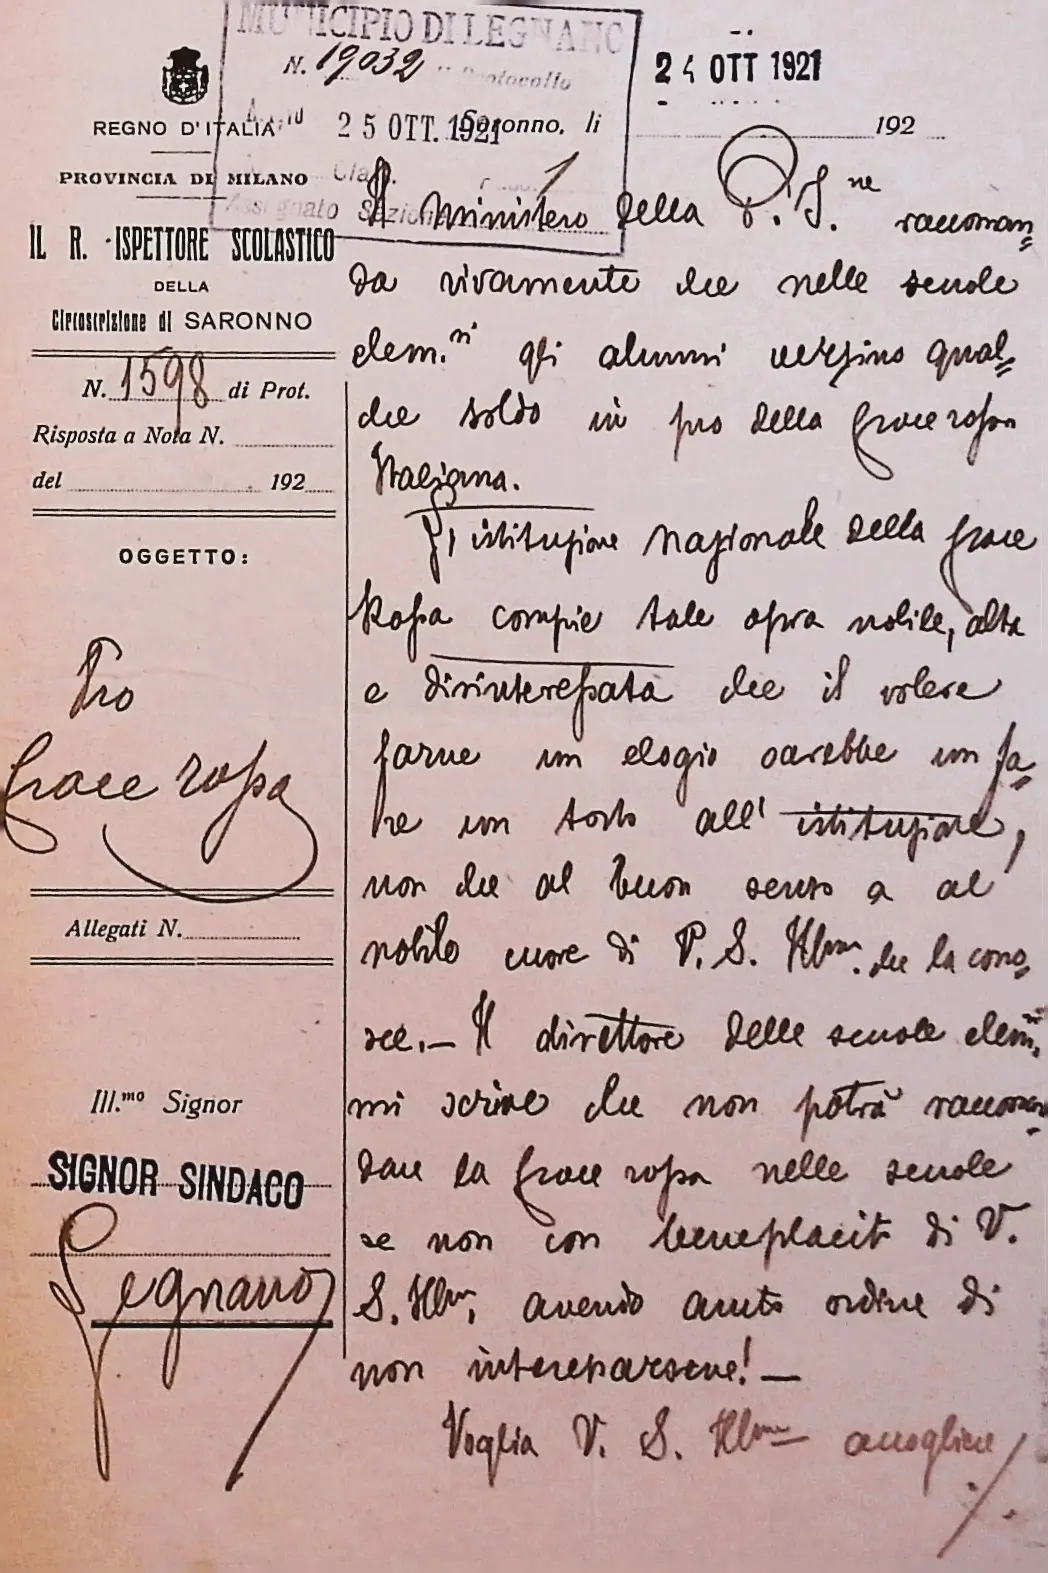 MUNICIPIO DI LEGNANO
N. 19032 Protocollo
25 OTT. 1921
Assegnato Sezione
24 OTT 1921
Saronno, li 192
REGNO D'ITALIA
PROVINCIA DI MILANO
IL R. ISPETTORE SCOLASTICO
DELLA
Circoscrizione di SARONNO
N. 1598 di Prot.
Risposta a Nota N.
del 192
OGGETTO:
Pro
Croce rossa
Allegati N.
Ill.mo Signor
SIGNOR SINDACO
Legnano
Il Ministero della P. I.ne raccoman=
da vivamente che nelle scuole
elem.ri gli alunni versino qual=
che soldo in pro della Croce rossa
Italiana.
L'istituzione nazionale della Croce
Rossa compie tale opra nobile, alta
e disinteressata che il volere
farne un elogio sarebbe un fa=
re un torto all'istituzione,
non che al buon senso e al
nobile cuore di V. S. Illma. che la cono=
sce. — Il direttore delle scuole elem.ri
mi scrive che non potrà raccoman=
dare la Croce rossa nelle scuole
se non con beneplacito di V.
S. Illma, avendo avuto ordine di
non interessarsene! —
Voglia V. S. Illma accogliere